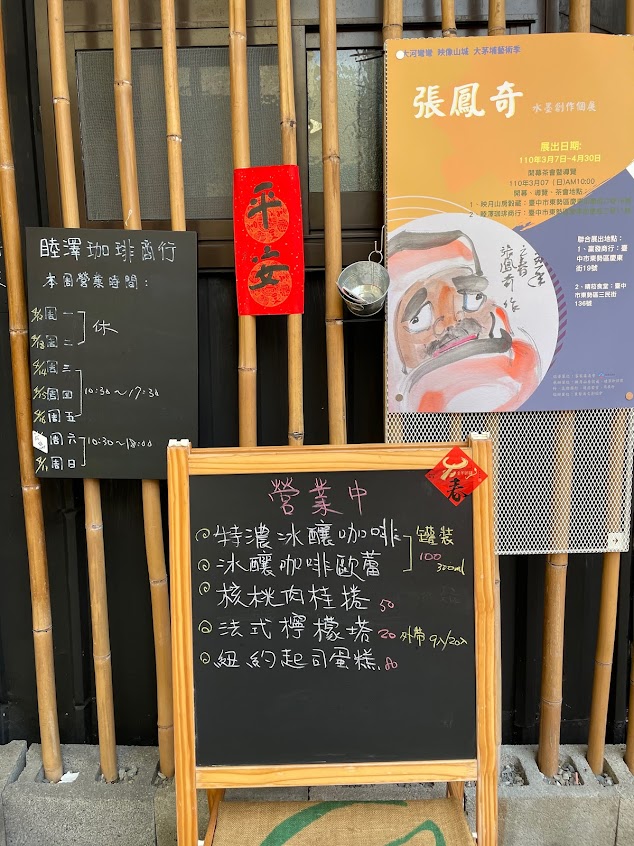 大河彎彎 映像山城 大茅埔藝術季
張鳳奇 水墨創作個展
展出日期:
110年3月7日~4月30日
開幕茶會暨導覽
110年3月07(日)AM10:00
開幕、導覽、茶會地點:
1、映月山房穀藏:臺中市東勢區慶
2、睦澤珈琲商行:臺中市東勢區
聯合展出地點:
1、贏發商行:臺
中市東勢區慶東
街19號
臺中
市東勢區三民街
136號
張鳳奇作
平安
睦澤珈琲商行
本週營業時間:
週一
週二
休
週三
週四
週五
10:30~17:30
週六
週日
10:30~18:00
春
營業中
特濃冰釀咖啡
冰釀咖啡歐蕾
罐裝
100
300ml
核桃肉桂捲 50
法式檸檬塔 20 外帶 9入/20入
紐約起司蛋糕 80